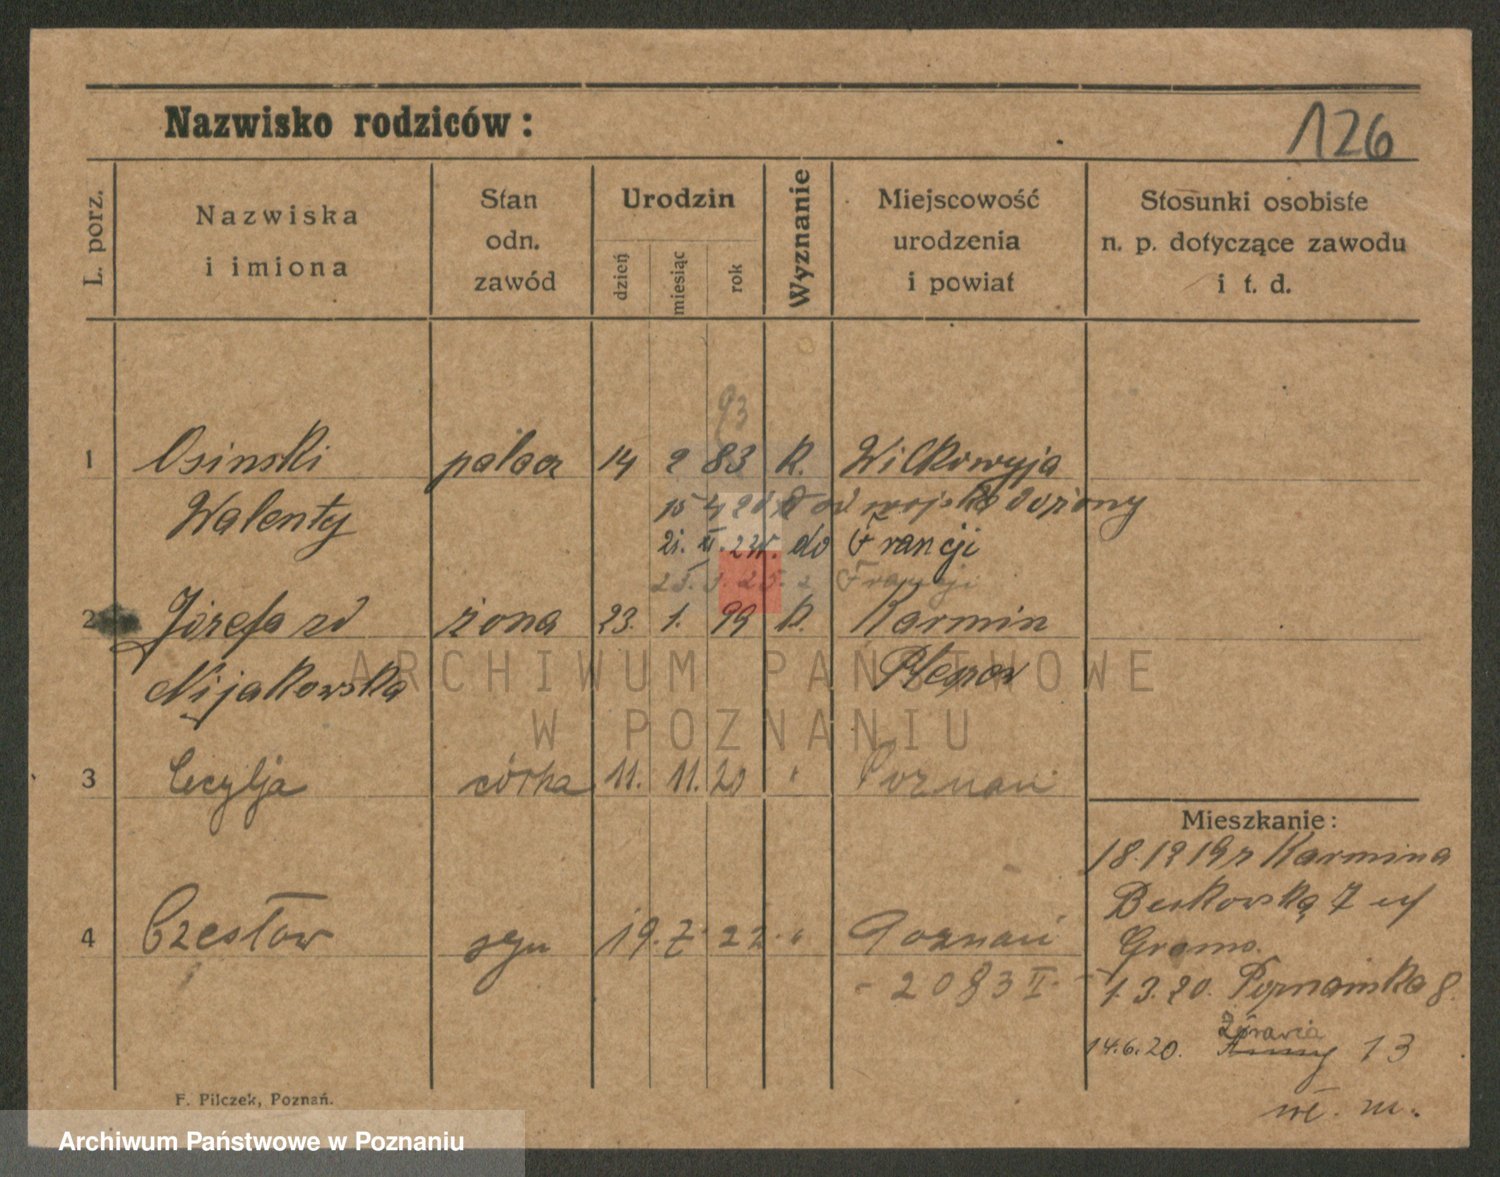 Nazwisko rodziców:
126
L. porz.
Nazwiska
i imiona
Stan
odn.
zawód
Urodzin
dzień
miesiąc
rok
Wyznanie
Miejscowość
urodzenia
i powiat
Stosunki osobiste
n. p. dotyczące zawodu
i t. d.
93
1 Osinski palacz 14 2 83 K. Wilkowyja
Walenty 15 4 20 od wojska do żony
21. XI. 23r. do Francji
25. 3. 25. z Francji
2 Józefa zd żona 23. 1. 99 K. Karmin
Nijakowska Pleszew
ARCHIWUM PAŃSTWOWE
W POZNANIU
3 Cecylja córka 11. 11. 20 " Poznań
Mieszkanie:
18.12 19 r Karmina
Berkowską 7
4 Czesław syn 19. 7. 22. " Poznań
- 2083 II -
1.3.20. Poznańska 8.
14.6.20. Żórawia 13
wł. m.
F. Pilczek, Poznań.
Archiwum Państwowe w Poznaniu